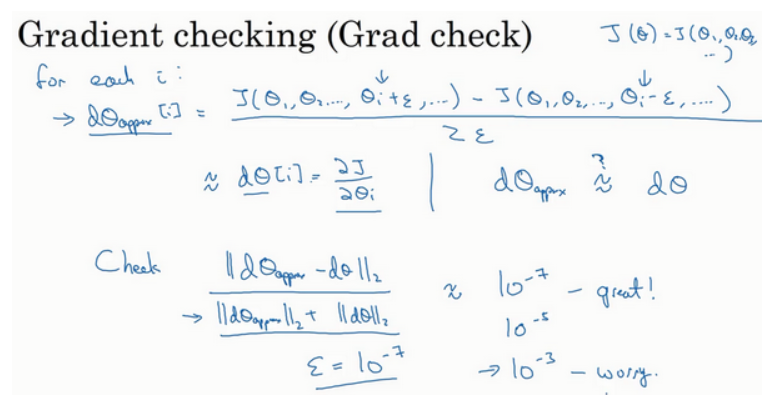 Gradient checking (Grad check)
J(θ) = J(θ₁, θ₂, θ₃, ...)
for each i:
→ dθ_approx[i] = (J(θ₁, θ₂, ..., θᵢ+ε, ...) - J(θ₁, θ₂, ..., θᵢ-ε, ...)) / 2ε
≈ dθ[i] = ∂J/∂θᵢ | dθ_approx ≈? dθ
Check ‖dθ_approx - dθ‖₂ / (‖dθ_approx‖₂ + ‖dθ‖₂) ≈ 10⁻⁷ - great!
10⁻⁵
ε = 10⁻⁷ → 10⁻³ - worry.